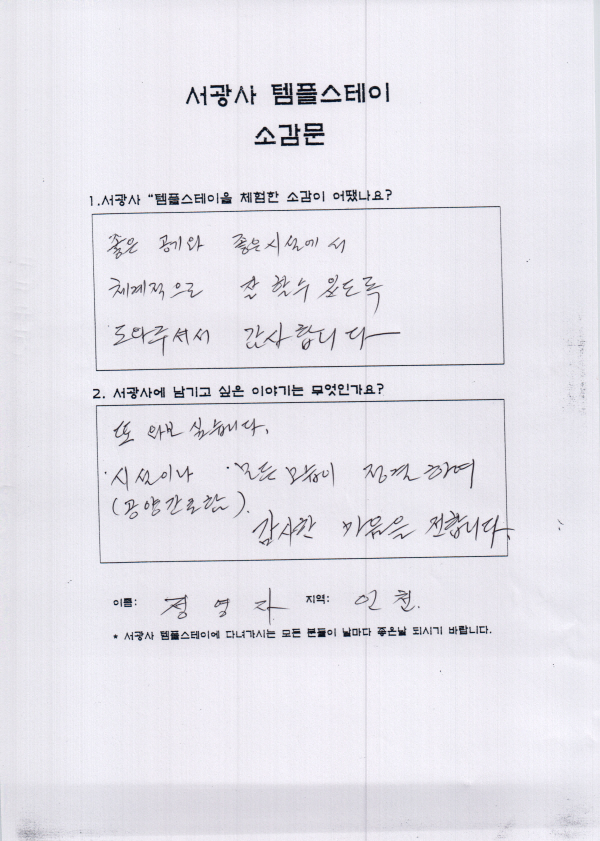 서광사 템플스테이
소감문
1.서광사 "템플스테이을 체험한 소감이 어땠나요?
좋은 공기와 좋은시설에서
체계적으로 잘 할수 있도록
도와주셔서 감사합니다
2. 서광사에 남기고 싶은 이야기는 무엇인가요?
또 와보고 싶습니다.
·시설이나 ·모든 모습이 정결하여
(공양간포함).
감사한 마음을 전합니다.
이름: 정영자 지역: 인천.
* 서광사 템플스테이에 다녀가시는 모든 분들이 날마다 좋은날 되시기 바랍니다.